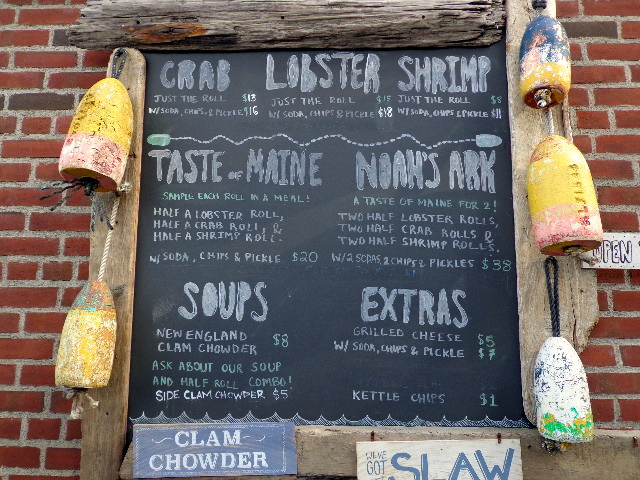 CRAB LOBSTER SHRIMP
JUST THE ROLL $13 JUST THE ROLL $15 JUST THE ROLL $8
W/SODA, CHIPS, & PICKLE $16 W/SODA, CHIPS & PICKLE $18 W/SODA, CHIPS & PICKLE $11
TASTE OF MAINE
SAMPLE EACH ROLL IN A MEAL!
HALF A LOBSTER ROLL,
HALF A CRAB ROLL, &
HALF A SHRIMP ROLL
W/SODA, CHIPS & PICKLE $20
NOAH'S ARK
A TASTE OF MAINE FOR 2!
TWO HALF LOBSTER ROLLS,
TWO HALF CRAB ROLLS &
TWO HALF SHRIMP ROLLS,
W/2 SODAS, 2 CHIPS 2 PICKLES $38
SOUPS
NEW ENGLAND
CLAM CHOWDER $8
ASK ABOUT OUR SOUP
AND HALF ROLL COMBO!
SIDE CLAM CHOWDER $5
EXTRAS
GRILLED CHEESE $5
W/ SODA, CHIPS & PICKLE $7
KETTLE CHIPS $1
CLAM
CHOWDER
WE'VE
GOT
SLAW
OPEN